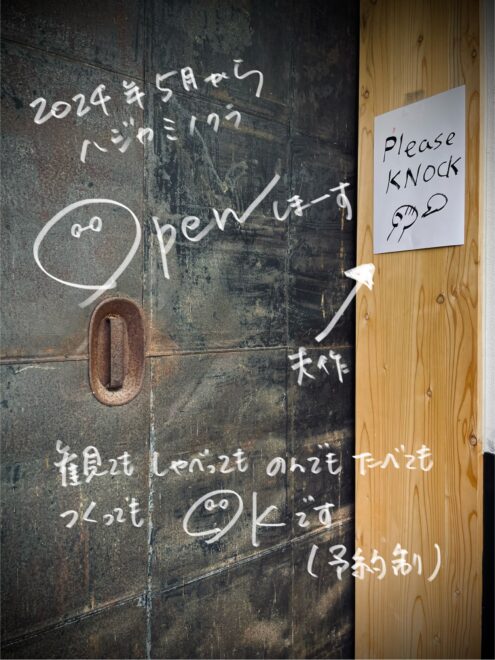 2024年5月から
ハジカミノクラ
Openしまーす
Please
KNOCK
夫作
観ても しゃべっても のんでも たべても
つくっても OKです
(予約制)